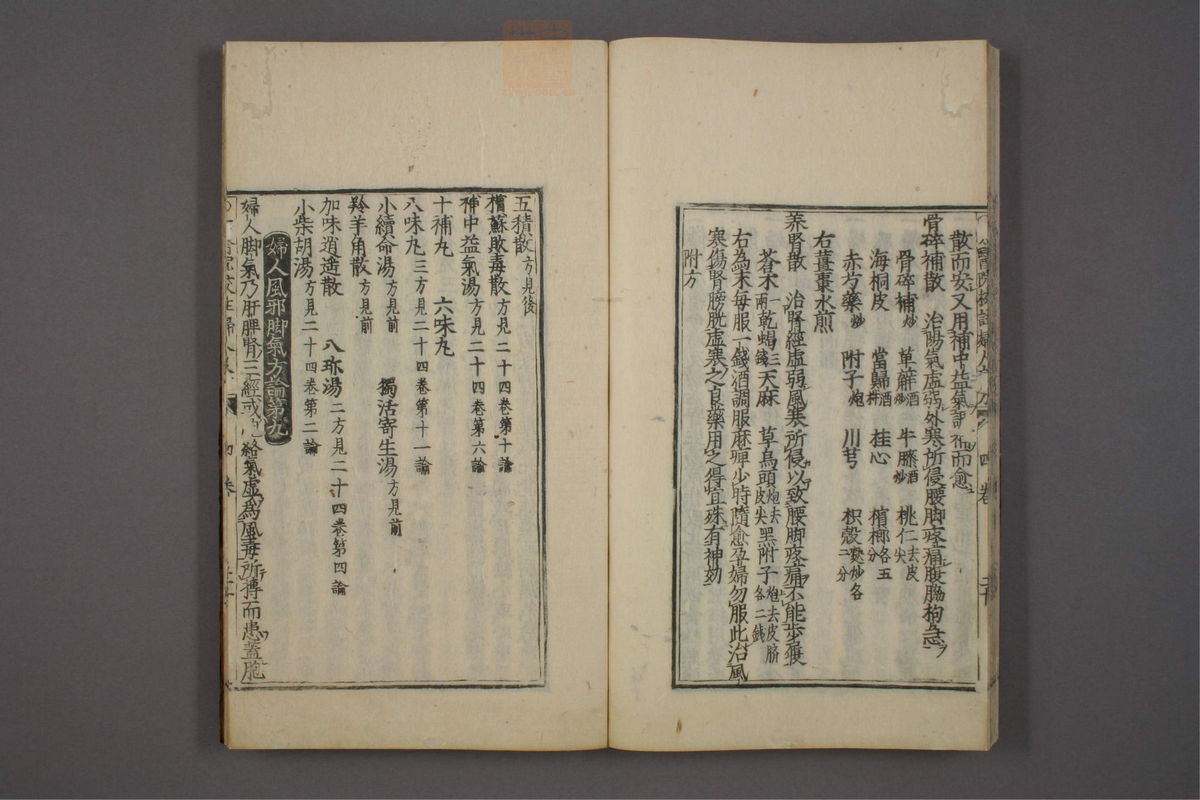 散而安又用補中益氣而愈
骨碎補散 治陽氣虛弱外寒所侵腰脚疼痛腹脇拘急
骨碎補炒 萆薢酒炒 牛膝酒炒 桃仁去皮尖
海桐皮 當歸酒拌 桂心 檳榔各五分
赤芍藥炒 附子炮 川芎 枳殼麩炒各二分
右薑棗水煎
養腎散 治腎經虛弱風寒所侵以致腰脚疼痛不能步履
蒼朮一兩 乾蝎三錢 天麻 草烏頭炮去皮尖 黑附子炮去皮臍各二錢
右為末每服一錢酒調服麻痺少時隨愈孕婦勿服此治風
寒傷腎膀胱虛寒之良藥用之得宜殊有神効
附方
四卷
五積散方見後
檳蘇敗毒散方見二十四卷第十論
補中益氣湯方見二十四卷第六論
十補丸 六味丸
八味丸三方見二十四卷第十一論
小續命湯方見前 獨活寄生湯方見前
羚羊角散方見前
加味逍遙散 八珍湯二方見二十四卷第四論
小柴胡湯方見二十四卷第二論
婦人風邪脚氣方論第九
婦人脚氣乃肝脾腎三經或胞絡氣虛為風毒所搏而患蓋胞